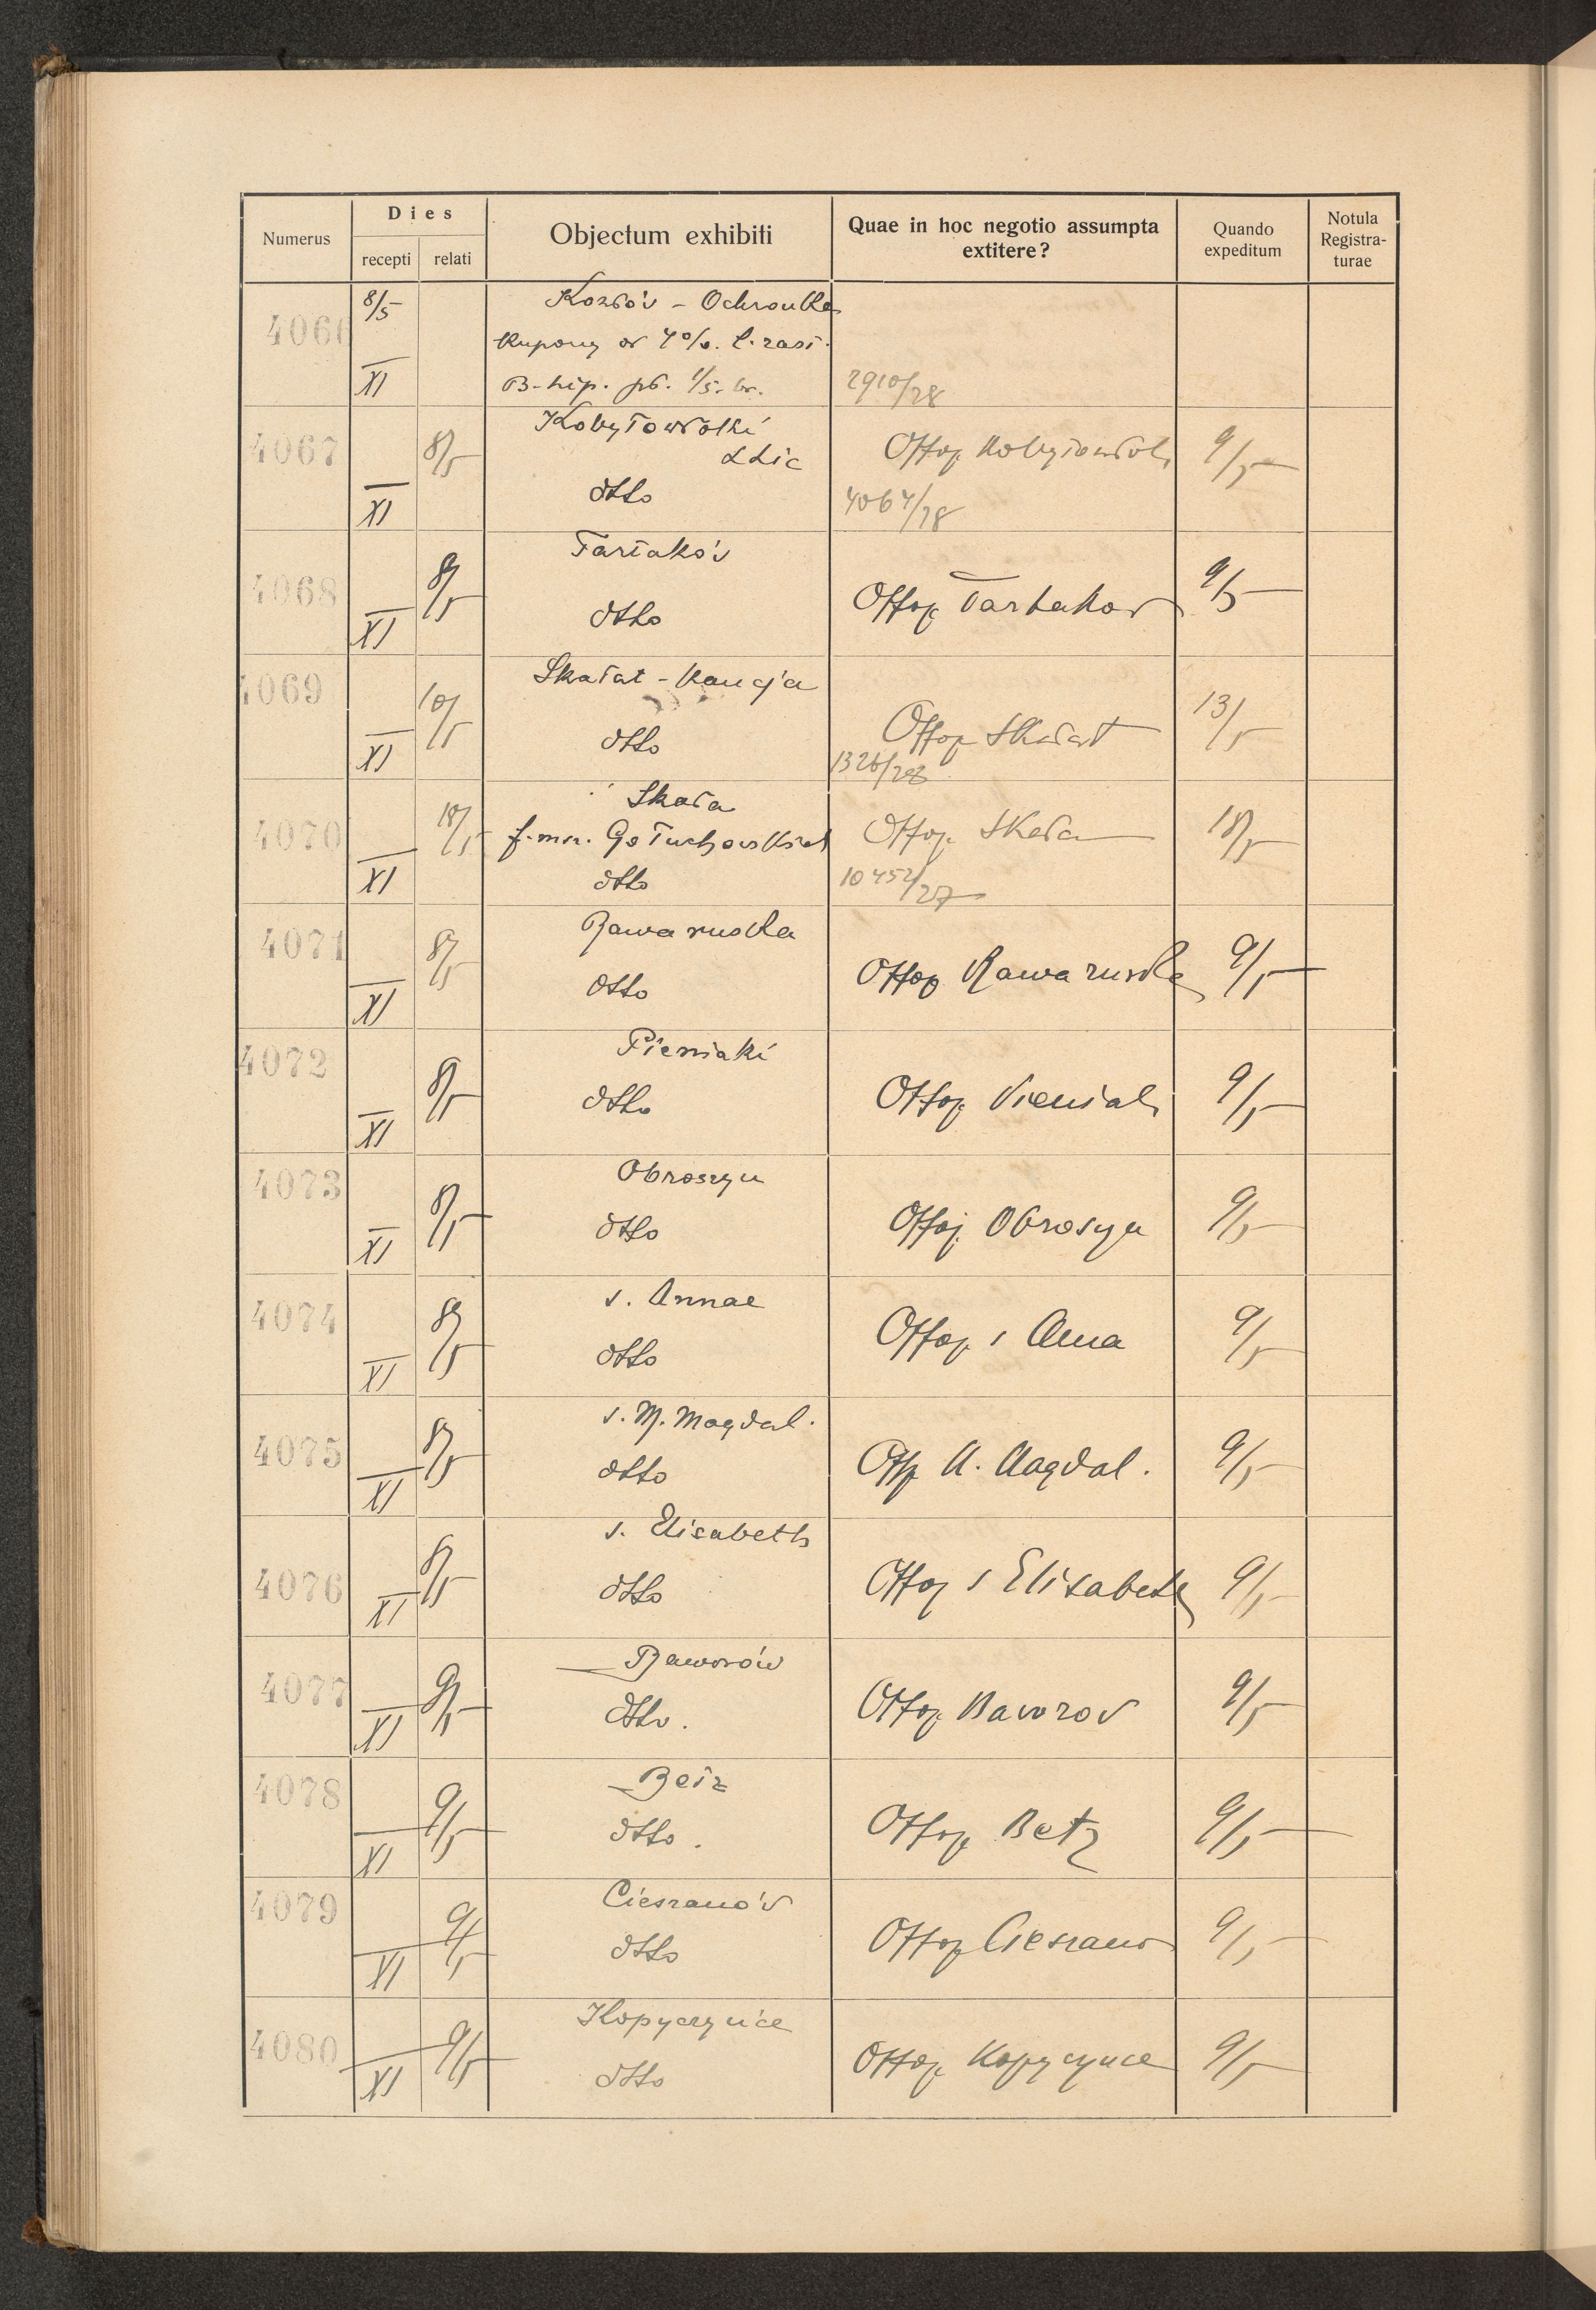 Numerus
Dies
recepti
relati
Objectum exhibiti
Quae in hoc negotio assumpta
extitere?
Quando
expeditum
Notula
Registra-
turae
4066 8/5 Kozłów - Ochronka
kupony od 4%. l. zast.
XI B. hip. pł. 1/5. br. 2910/28
4067 8/5 Kobyłowłoki 9/5
XI dtto 4067/28
4068 8/5 Tartaków Ottop Tartakov 9/5
XI dtto
4069 10/5 Skałat - Kaucja Ottop Skałat 13/5
XI dtto 1326/28
4070 18/5 Skała Ottop Skała 18/5
f. mn. Gołuchowskich
XI dtto 10452/27
4071 8/5 Rawa ruska Ottop Rawa ruska 9/5
XI dtto
4072 8/5 Pieniaki Ottop Pieniaki 9/5
XI dtto
4073 8/5 Obroszyn Ottop Obrosyn 9/5
XI dtto
4074 8/5 s. Annae Ottop s Anna 9/5
XI dtto
4075 8/5 s. M. Magdal. Ottop M. Magdal. 9/5
XI dtto
4076 8/5 s. Elisabeth Ottop s Elisabeth 9/5
XI dtto
4077 9/5 Baworów Ottop Bavorov 9/5
XI dtto.
4078 9/5 Bełz Ottop Betz 9/5
XI dtto.
4079 9/5 Cieszanów Ottop Cieszano 9/5
XI dtto
4080 9/5 Kopyczyńce Ottop Kopycynce 9/5
XI dtto